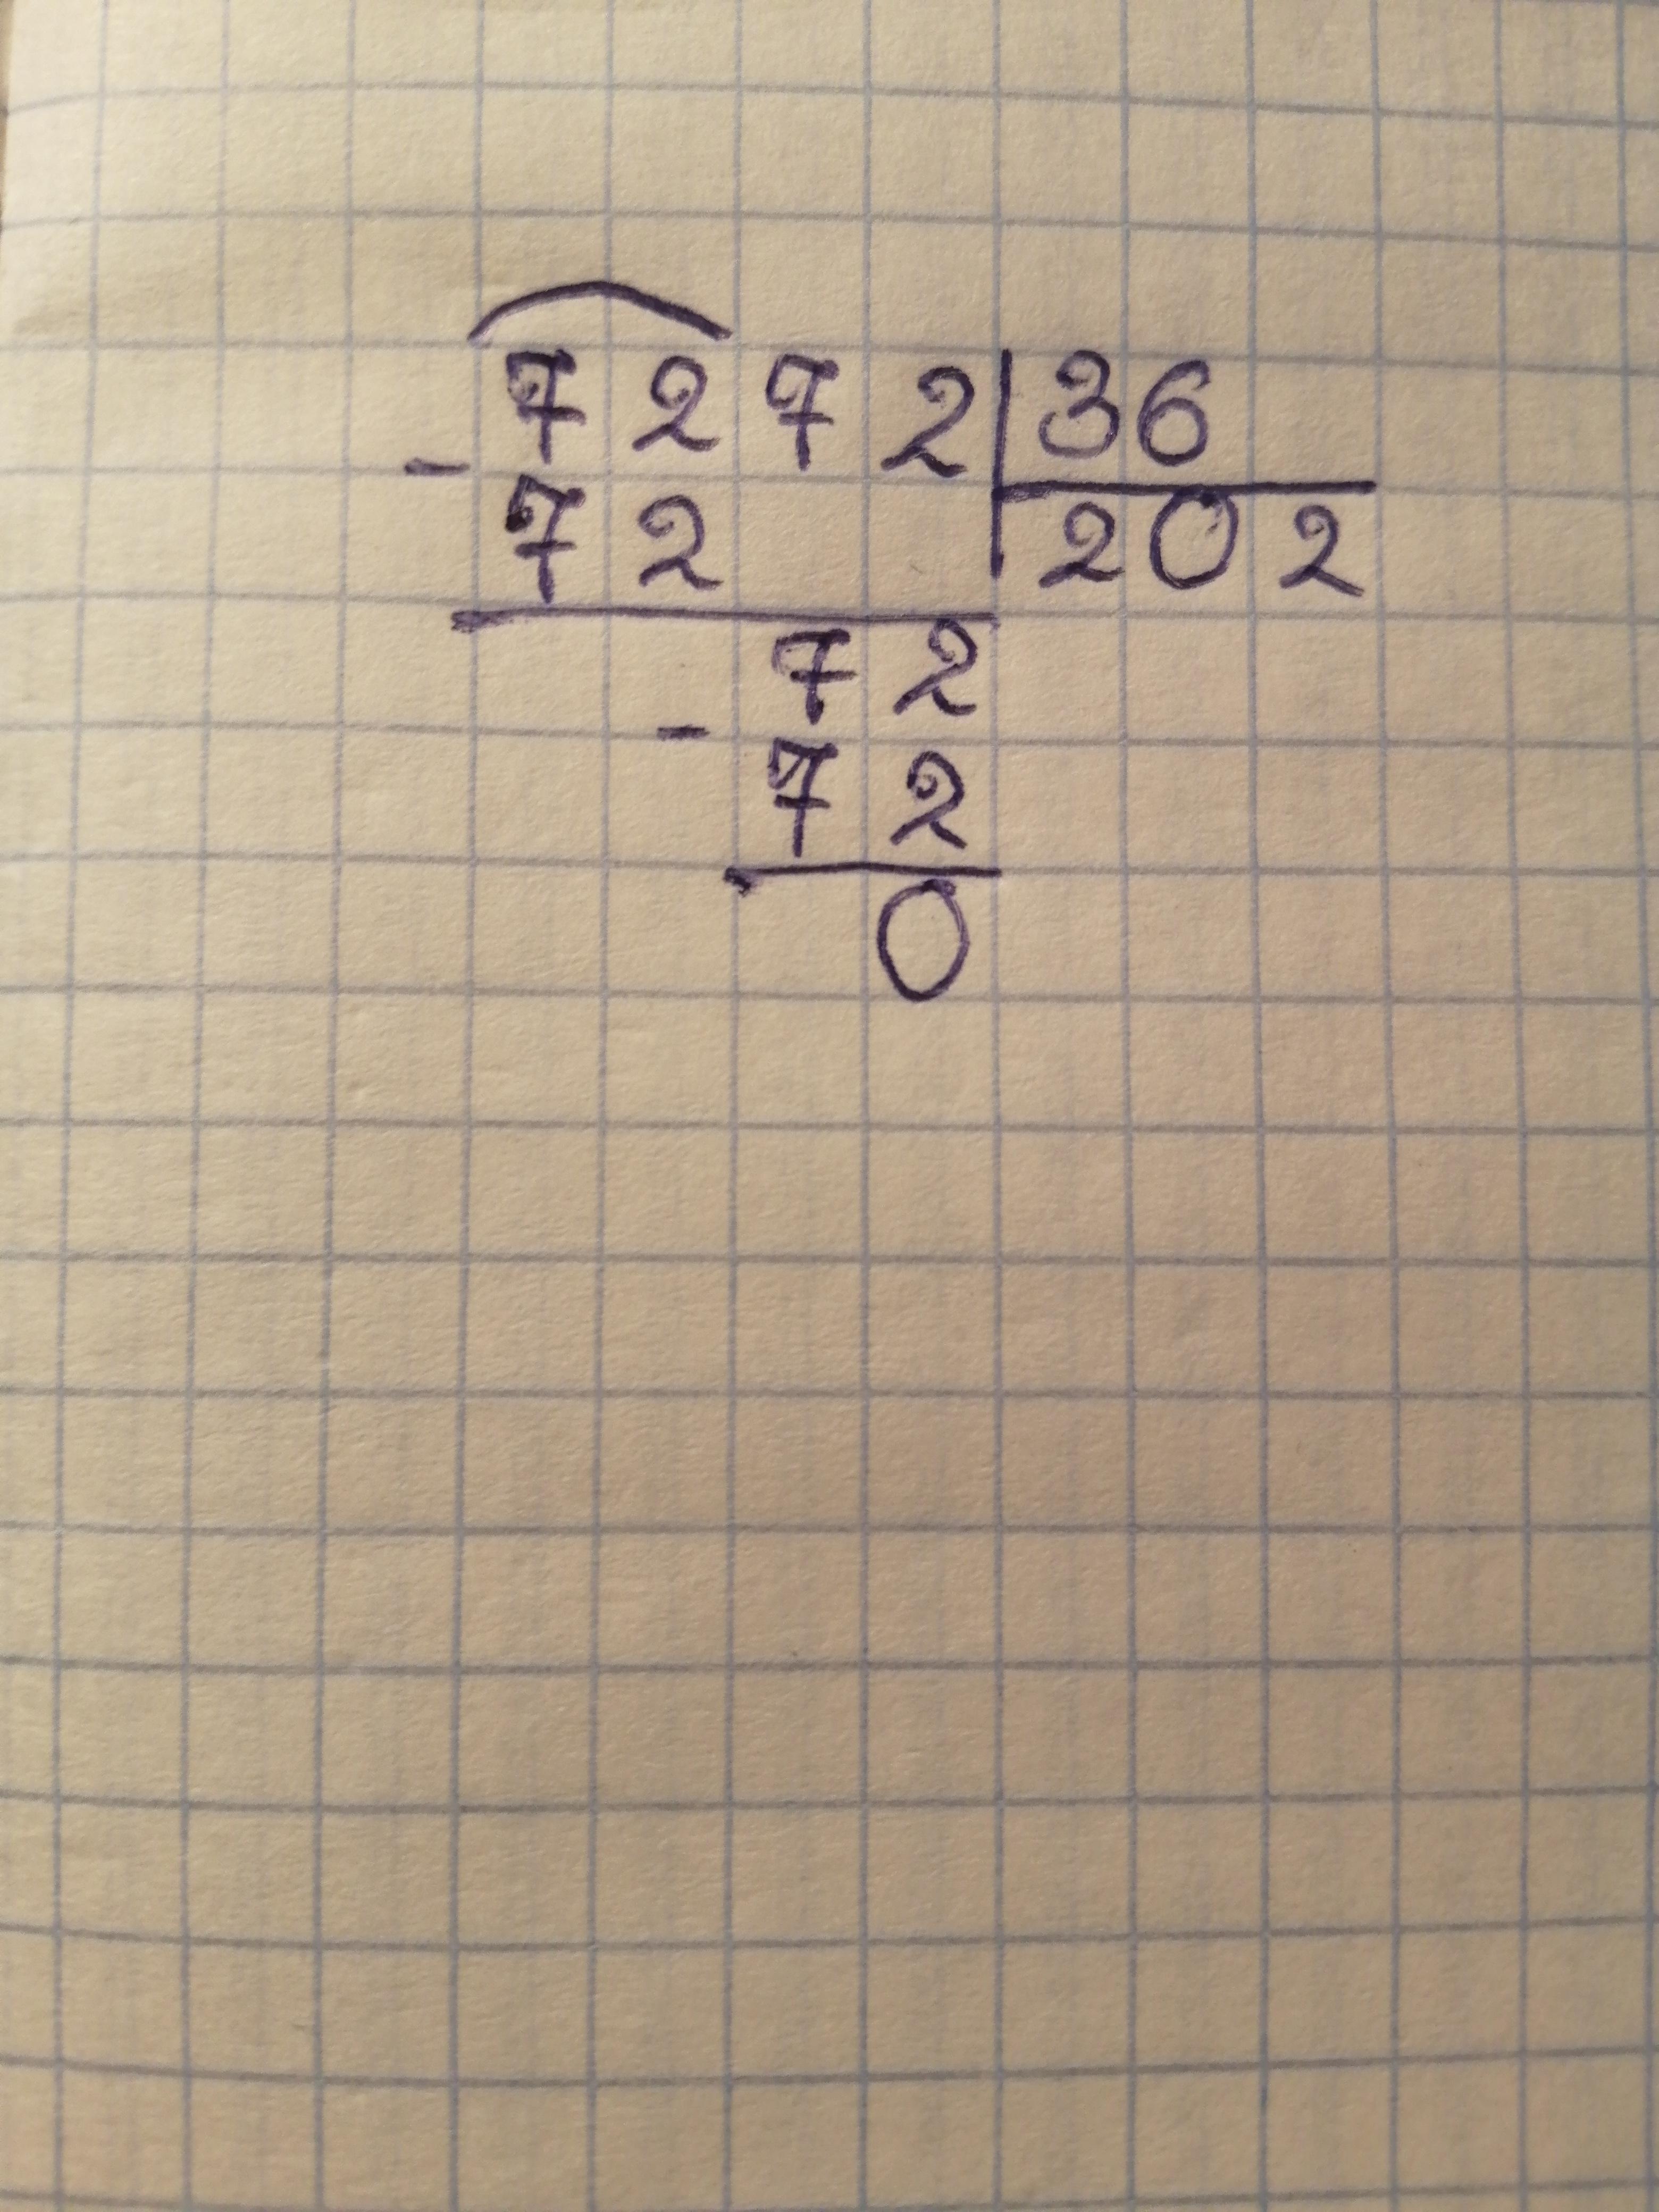 7272|36
-72 |202
72
-72
0